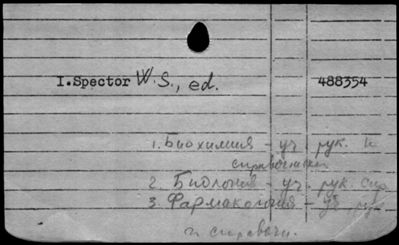 I.Spector W.S., ed. 488354
1. Биохимия - уч. рук. и
справочники
2. Биология - уч. рук. спр.
3 Фармакология - уч. рук.
и справочн.